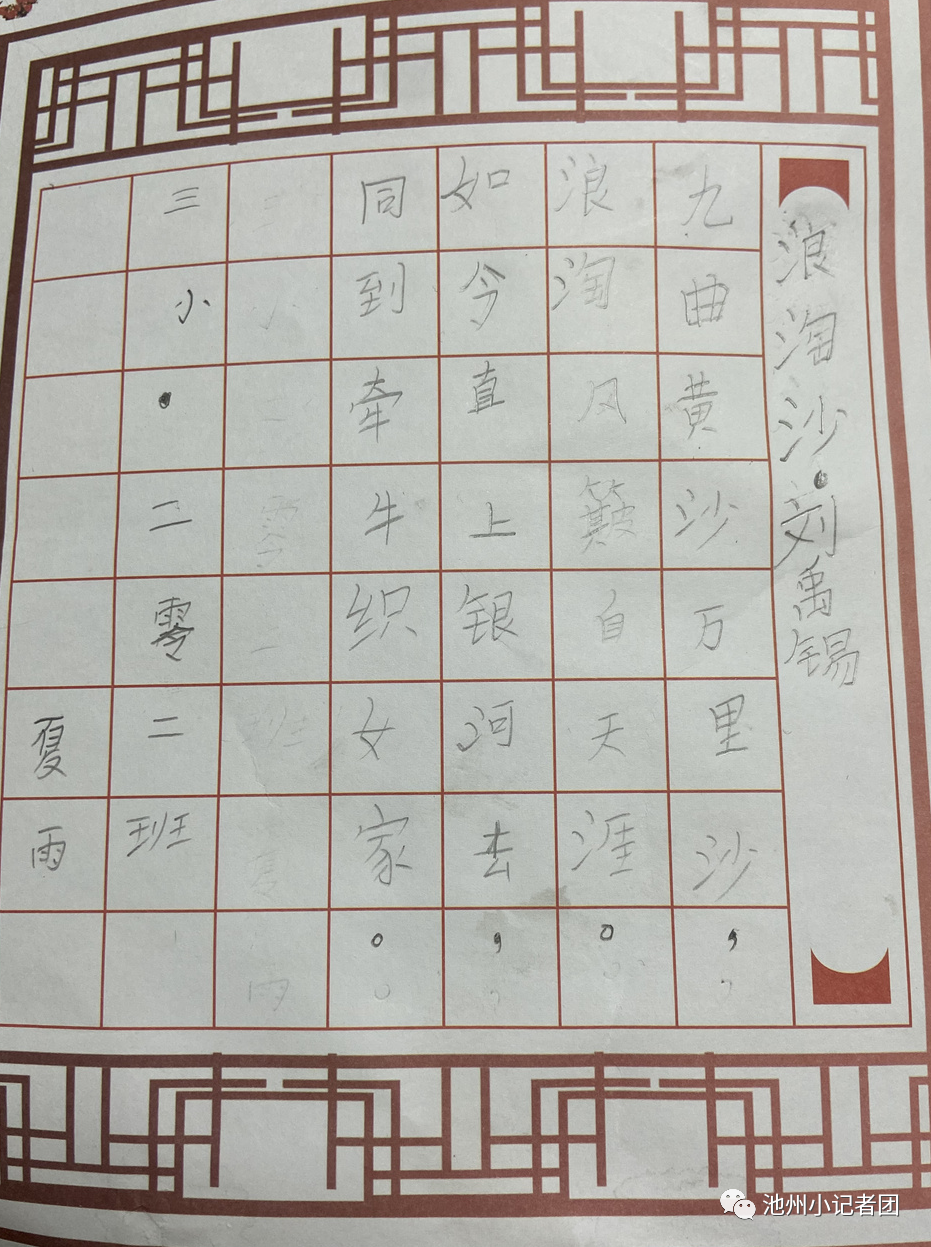 浪淘沙·刘禹锡
九曲黄沙万里沙，
浪淘风簸自天涯。
如今直上银河去，
同到牵牛织女家。
三小·二零二班
夏雨
池州小记者团